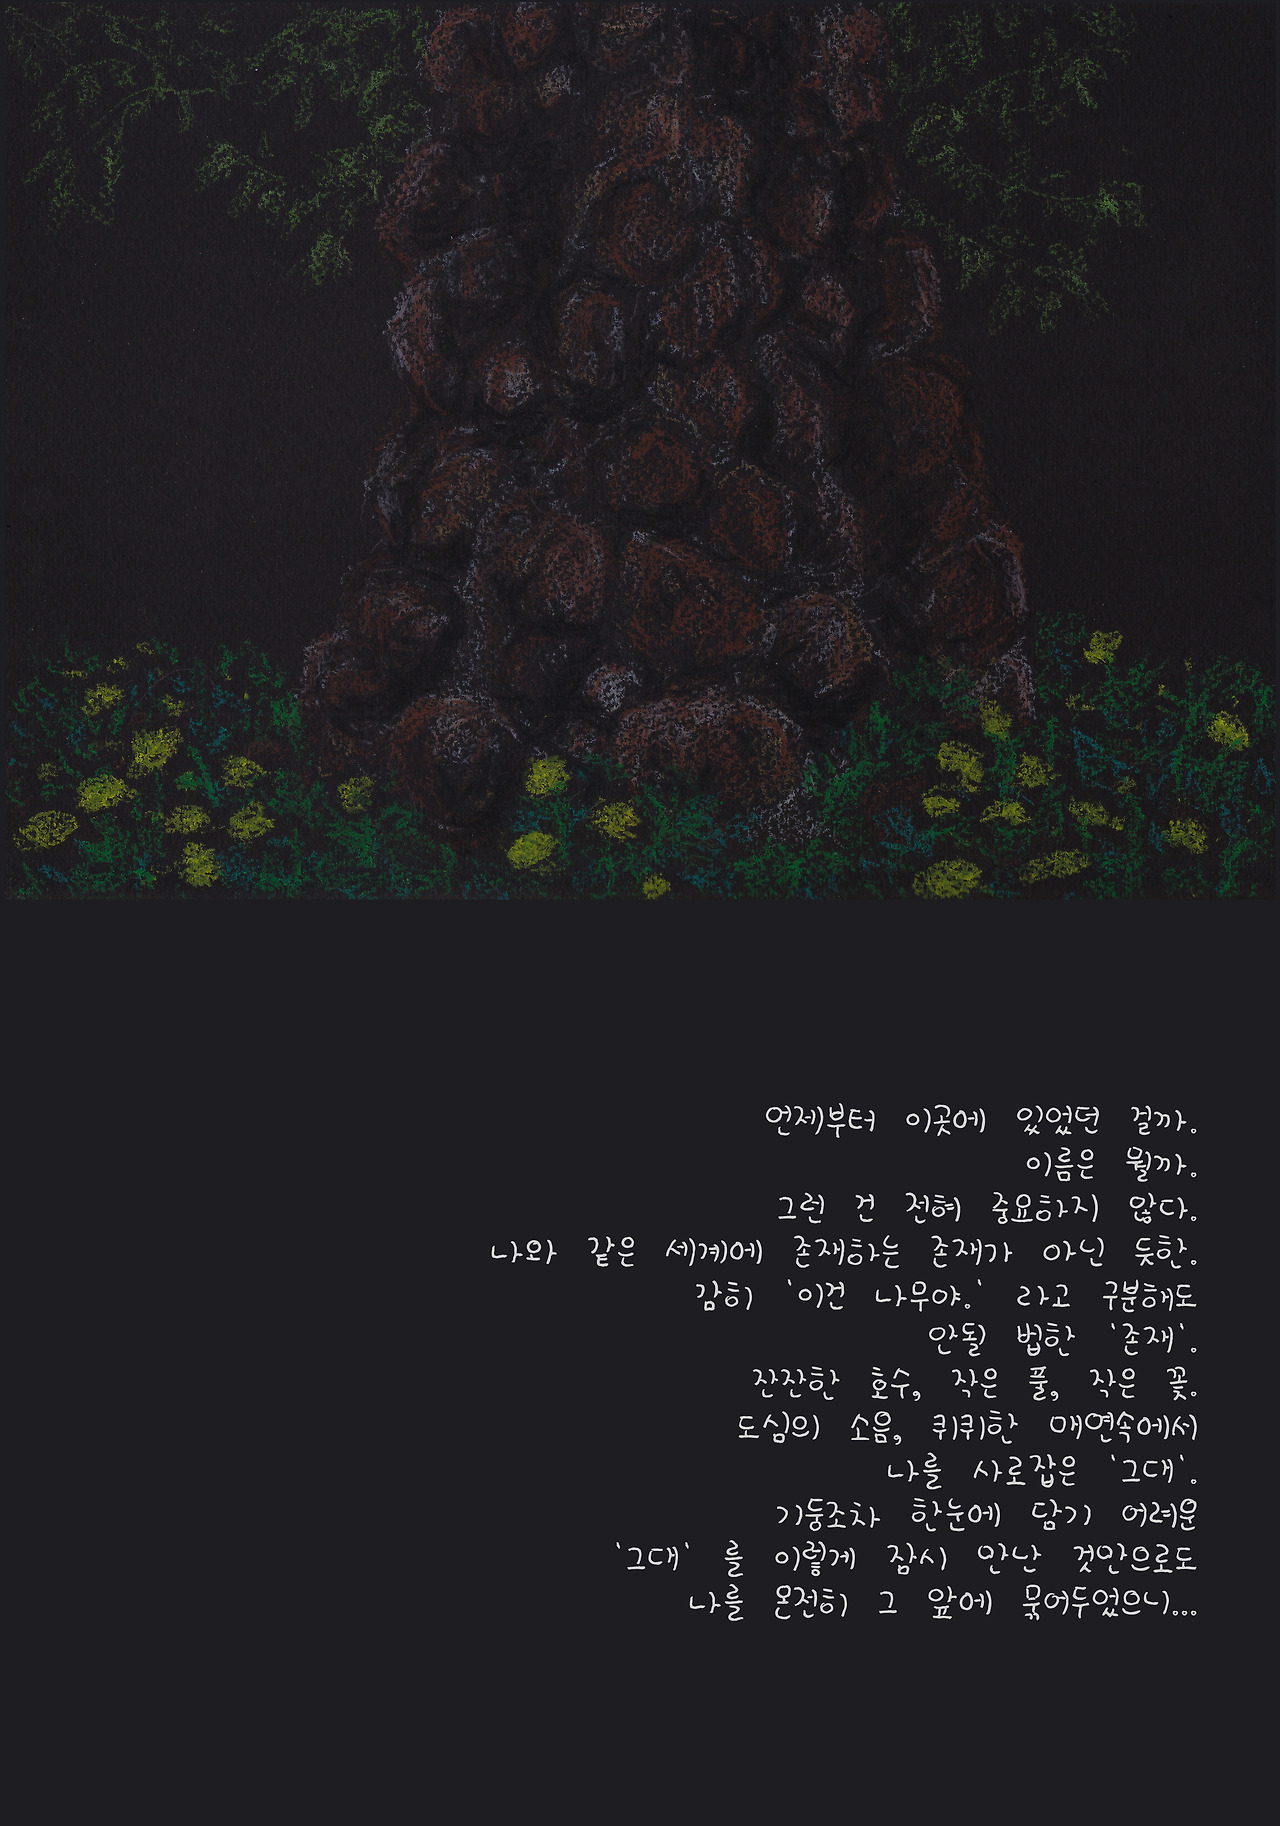 언제부터 이곳에 있었던 걸까.
이름은 뭘까.
그런 건 전혀 중요하지 않다.
나와 같은 세계에 존재하는 존재가 아닌 듯한.
감히 '이건 나무야.' 라고 구분해도
안될 법한 '존재'.
잔잔한 호수, 작은 풀, 작은 꽃.
도심의 소음, 퀴퀴한 매연속에서
나를 사로잡은 '그대'.
기둥조차 한눈에 담기 어려운
'그대' 를 이렇게 잠시 만난 것만으로도
나를 온전히 그 앞에 묶어두었으니...